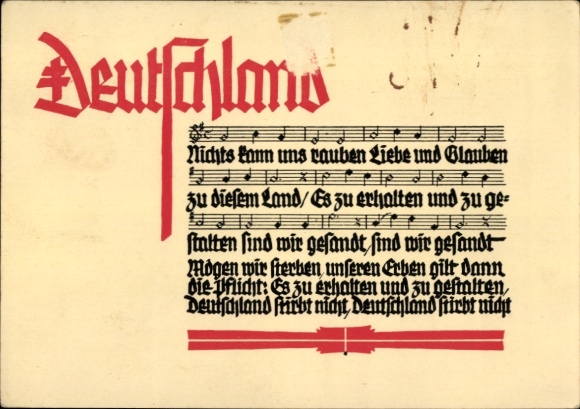 Deutschland
Nichts kann uns rauben Liebe und Glauben
zu diesem Land/ Es zu erhalten und zu ge-
stalten sind wir gesandt, sind wir gesandt
Mögen wir sterben, unseren Erben gilt dann
die Pflicht: Es zu erhalten und zu gestalten,
Deutschland stirbt nicht, Deutschland stirbt nicht